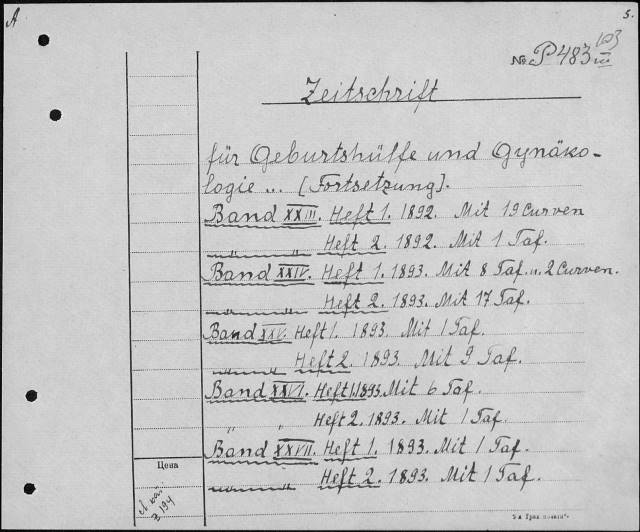 A
5.
№ P483 III
103
Zeitschrift
für Geburtshülfe und Gynäko-
logie ... [Fortsetzung].
Band XXIII. Heft 1. 1892. Mit 19 Curven
„ „ Heft 2. 1892. Mit 1 Taf.
Band XXIV. Heft 1. 1893. Mit 8 Taf. u. 2 Curven.
„ „ Heft 2. 1893. Mit 17 Taf.
Band XXV. Heft 1. 1893. Mit 1 Taf.
„ „ Heft 2. 1893. Mit 9 Taf.
Band XXVI. Heft 1. 1893. Mit 6 Taf.
„ „ Heft 2. 1893. Mit 1 Taf.
Band XXVII. Heft 1. 1893. Mit 1 Taf.
„ „ Heft 2. 1893. Mit 1 Taf.
Цена
194